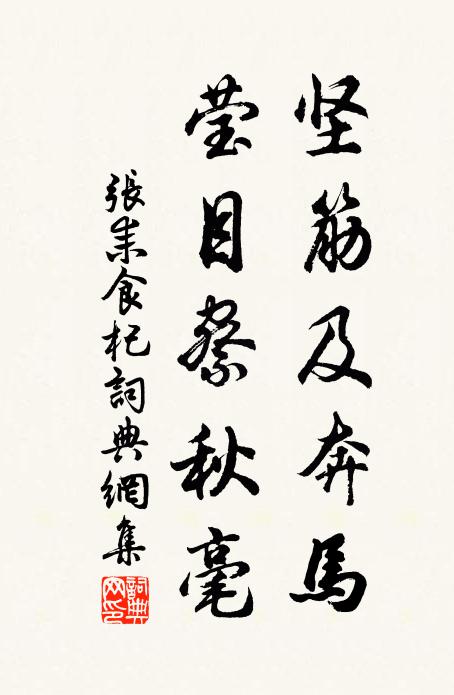 坚筋及奔馬
莹目察秋毫
張耒食杞詞典網集
詞典网印